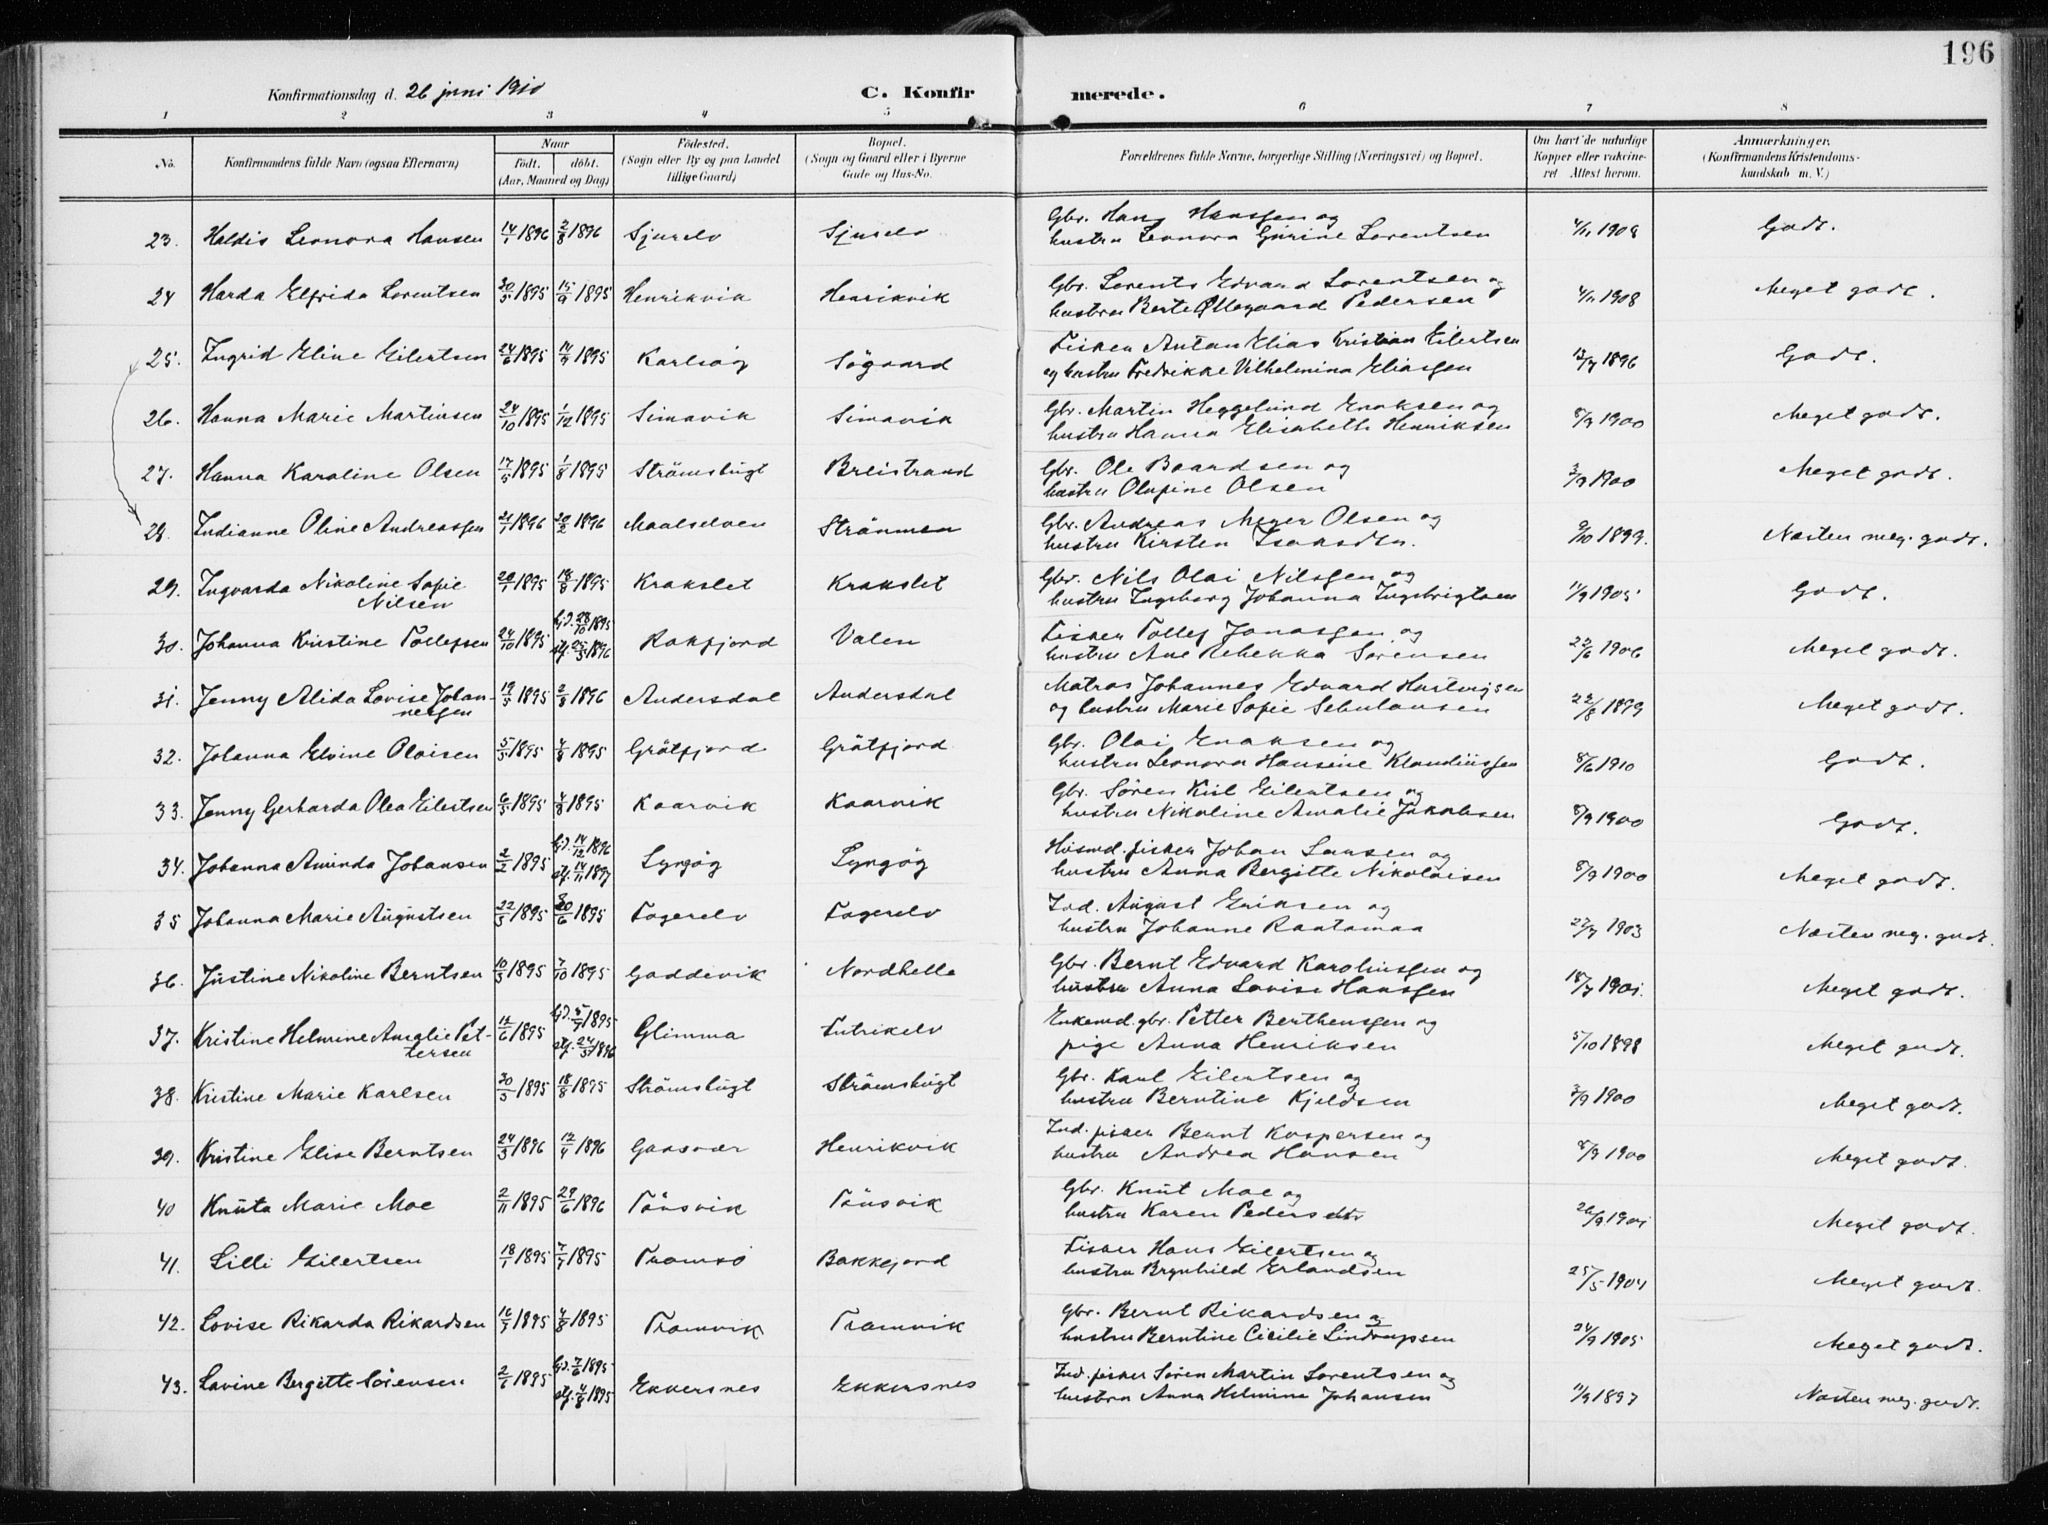 196
Konfirmationsdag d. 26 juni 1910 C. Konfirmerede.
1 2 3 4 5 6 7 8
No. Konfirmandens fulde Navn (ogsaa Efternavn) Naar født. døbt. (Aar, Maaned og Dag) Fødested. (Sogn eller By og paa Landet tillige Gaard) Bopæl. (Sogn og Gaard eller i Byerne Gade og Hus-No. Forældrenes fulde Navne, borgerlige Stilling (Næringsvei) og Bopæl. Om havt de naturlige Kopper eller vakcineret Attest herom. Anmærkninger. (Konfirmandens Kristendomskundskab m. V.)
23. Haldis Leonora Hansen 14/1 1896 2/8 1896 Sjurelv Sjurelv Gbr. Hans Hansen og
hustru Leonora Gurine Lorentsen 4/11 1908 Godt.
24 Harda Elfrida Lorentsen 30/5 1895 15/9 1895 Henrikvik Henrikvik Gbr. Lorents Edvard Lorentsen og
hustru Berte Ollegaard Pedersen 4/11 1908 Meget godt.
25. Ingrid Eline Eilertsen 24/6 1895 14/9 1895 Karlsøy Søgaard Fisker Antan Elias Kristian Eilertsen
og hustru Fredrikke Vilhelmina Eliassen 13/7 1896 Godt.
26. Hanna Marie Martinsen 24/10 1895 1/12 1895 Simavik Simavik Gbr. Martin Heggelund Enoksen og
hustru Hanna Elisabeth Henriksen 8/9 1900 Meget godt.
27. Hanna Karoline Olsen 17/5 1895 1/8 1895 Strømsbugt Breistrand Gbr. Ole Baardsen og
hustru Olufine Olsen 3/9 1900 Meget godt.
28. Indianne Oline Andreassen 21/1 1896 20/2 1896 Maalselven Strømmen Gbr. Andreas Meyer Olsen og
hustru Kirsten Isaksdtr. 9/10 1899. Næsten meg. godt.
29. Ingvarda Nikoline Sofie
Nilsen 28/7 1895 18/8 1895 Krakslet Krakslet Gbr. Nils Olai Nilsen og
hustru Ingeborg Johanna Ingebrigtsen 11/9 1905 Godt.
30. Johanna Kristine Tollefsen 24/10 1895 hjd. 28/10 1895
stf. 25/5 1896 Rakfjord Valen Fisker Tollef Jonassen og
hustru Ane Rebekka Sørensen 22/6 1906 Meget godt.
31. Jenny Alida Lovise Johan-
nessen 19/5 1895 2/8 1896 Andersdal Andersdal Matros Johannes Edvard Hartvigsen
og hustru Marie Sofie Sebulonsen 22/8 1899 Meget godt.
32. Johanna Elvine Olaisen 5/5 1895 4/8 1895 Grøtfjord Grøtfjord Gbr. Olai Enoksen og
hustru Leonora Hansine Klaudiussen 8/6 1910 Godt.
33. Jenny Gerharda Olea Eilertsen 6/5 1895 4/8 1895 Kaarvik Kaarvik Gbr. Søren Kiil Eilertsen og
hustru Nikoline Amalie Jakobsen 8/9 1900 Godt.
34. Johanna Aminda Johansen 2/2 1895 hjd. 14/12 1896
stf. 14/11 1897 Lyngøy Lyngøy Husmd. fisker Johan Larsen og
hustru Anna Bergitte Nikolaisen 8/9 1900 Meget godt.
35 Johanna Marie Augustsen 22/5 1895 30/6 1895 Fagerelv Fagerelv Ind. August Eriksen og
hustru Johanne Raatamaa 27/7 1903 Næsten meg. godt.
36. Justine Nikoline Berntsen 10/5 1895 7/10 1895 Gaddevik Nordhella Gbr. Bernt Edvard Karoliussen og
hustru Anna Lovise Hanssen 18/7 1901. Meget godt.
37. Kristine Helmine Amalie Pet-
tersen 12/6 1895 hjd. 5/7 1895
stf. 24/5 1896 Glimma Futrikelv Enkemd. gbr. Petter Berthensen og
pige Anna Henriksen 5/10 1898 Meget godt.
38. Kristine Marie Karlsen 30/5 1895 18/8 1895 Strømsbugt Strømsbugt Gbr. Karl Eilertsen og
hustru Berntine Kjeldsen 3/9 1900 Meget godt.
39. Kristine Elise Berntsen 24/3 1896 12/4 1896 Gaasvær Henrikvik Ind. fisker Bernt Kaspersen og
hustru Andrea Hansen 8/9 1900 Meget godt.
40 Knuta Marie Moe 2/11 1895 29/6 1896 Tønsvik Tønsvik Gbr. Knut Moe og
hustru Karen Pedersdtr 26/9 1901 Meget godt.
41. Lilli Eilertsen 18/1 1895 7/7 1895 Tromsø Bakkejord Fisker Hans Eilertsen og
hustru Brynhild Erlandsen 25/5 1904 Meget godt.
42. Lovise Rikarda Rikardsen 16/7 1895 4/8 1895 Tromvik Tromvik Gbr. Bernt Rikardsen og
hustru Berntine Cicilie Lindrupsen 26/9 1905 Meget godt.
43. Lavine Bergitte Sørensen 2/6 1895 hjd. 7/6 1895
stf. 4/8 1895 Ekkersnes Ekkersnes Ind. fisker Søren Martin Lorentsen og
hustru Anna Helmine Johansen 11/9 1897 Næsten meg. godt.